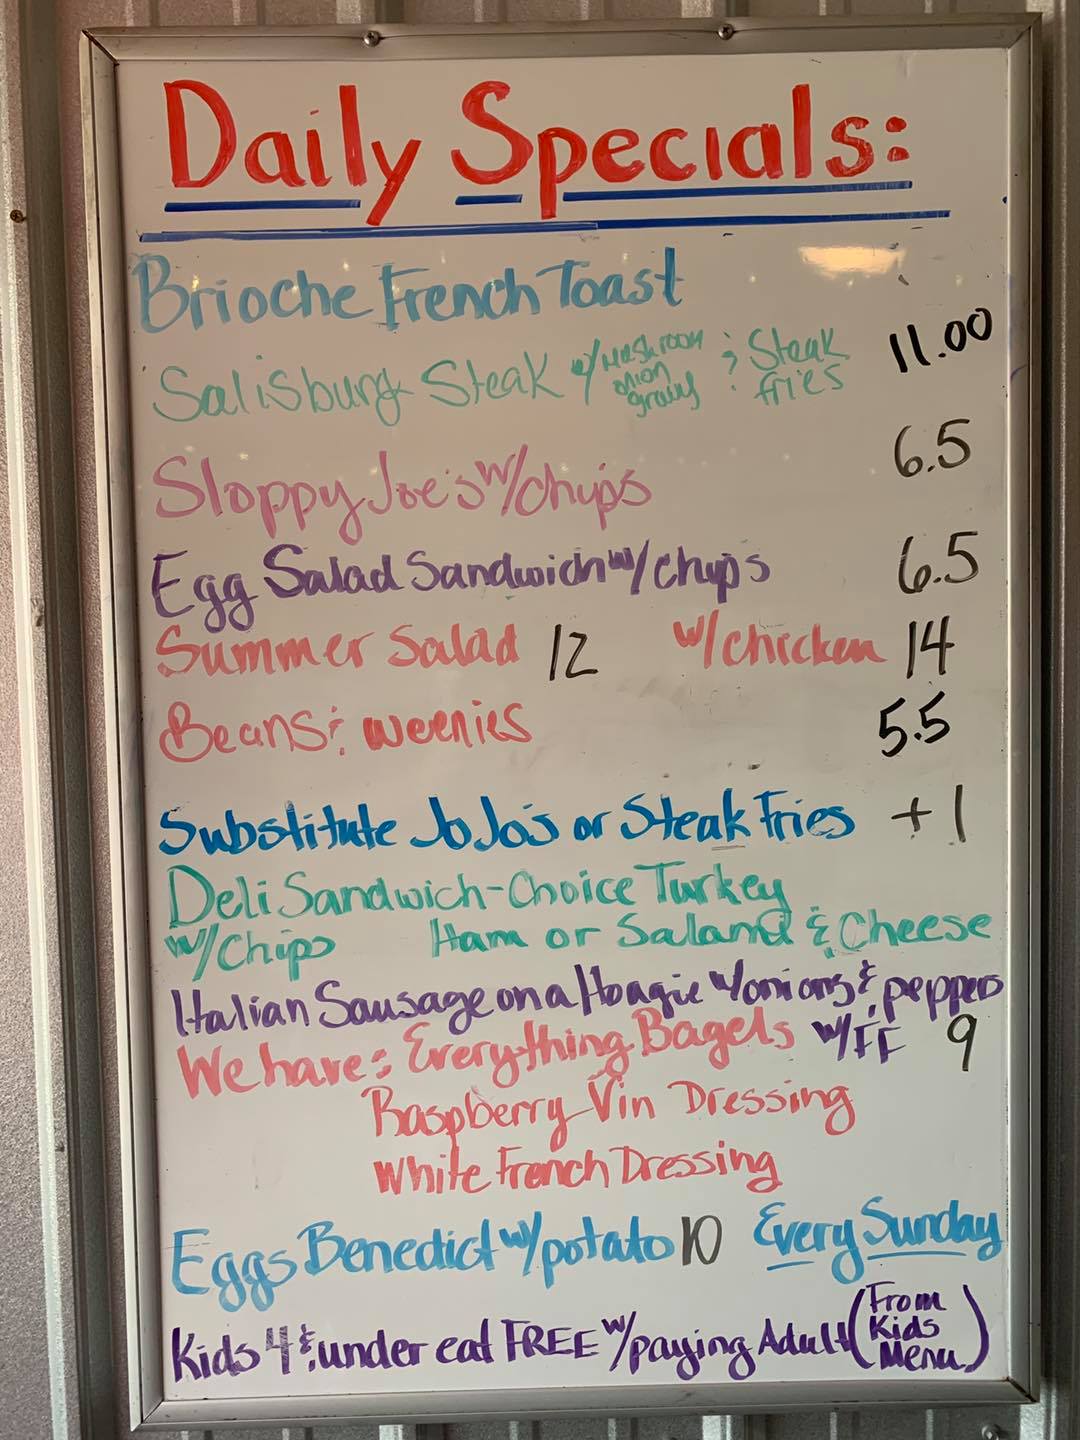 Daily Specials:
Brioche French Toast
Salisburg Steak w/ Mushroom onion gravy & Steak fries 11.00
Sloppy Joe's w/chips 6.5
Egg Salad Sandwich w/chips 6.5
Summer Salad 12 w/chicken 14
Beans & weenies 5.5
Substitute JoJo's or Steak Fries +1
Deli Sandwich - Choice Turkey
w/Chips Ham or Salami & Cheese
Italian Sausage on a Hoagie w/onions & peppers
We have: Everything Bagels w/FF 9
Raspberry Vin Dressing
White French Dressing
Eggs Benedict w/potato 10 Every Sunday
Kids 4 & under eat FREE w/paying Adult (From Kids Menu)